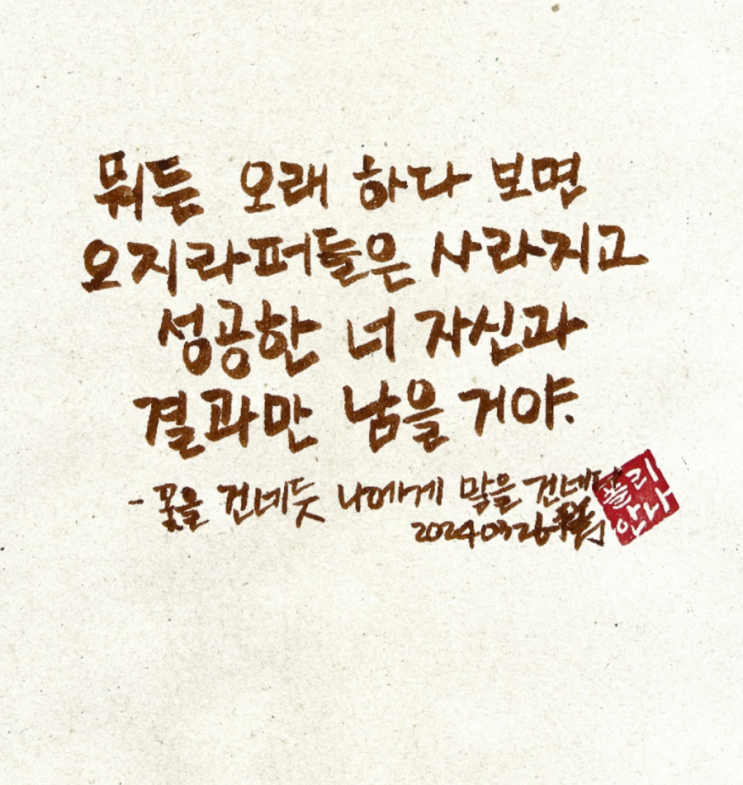 뭐든 오래 하다 보면
오지라퍼들은 사라지고
성공한 너 자신과
결과만 남을 거야.
- 꽃을 건네듯 나에게 말을 건네다
20240326
폴리
안나